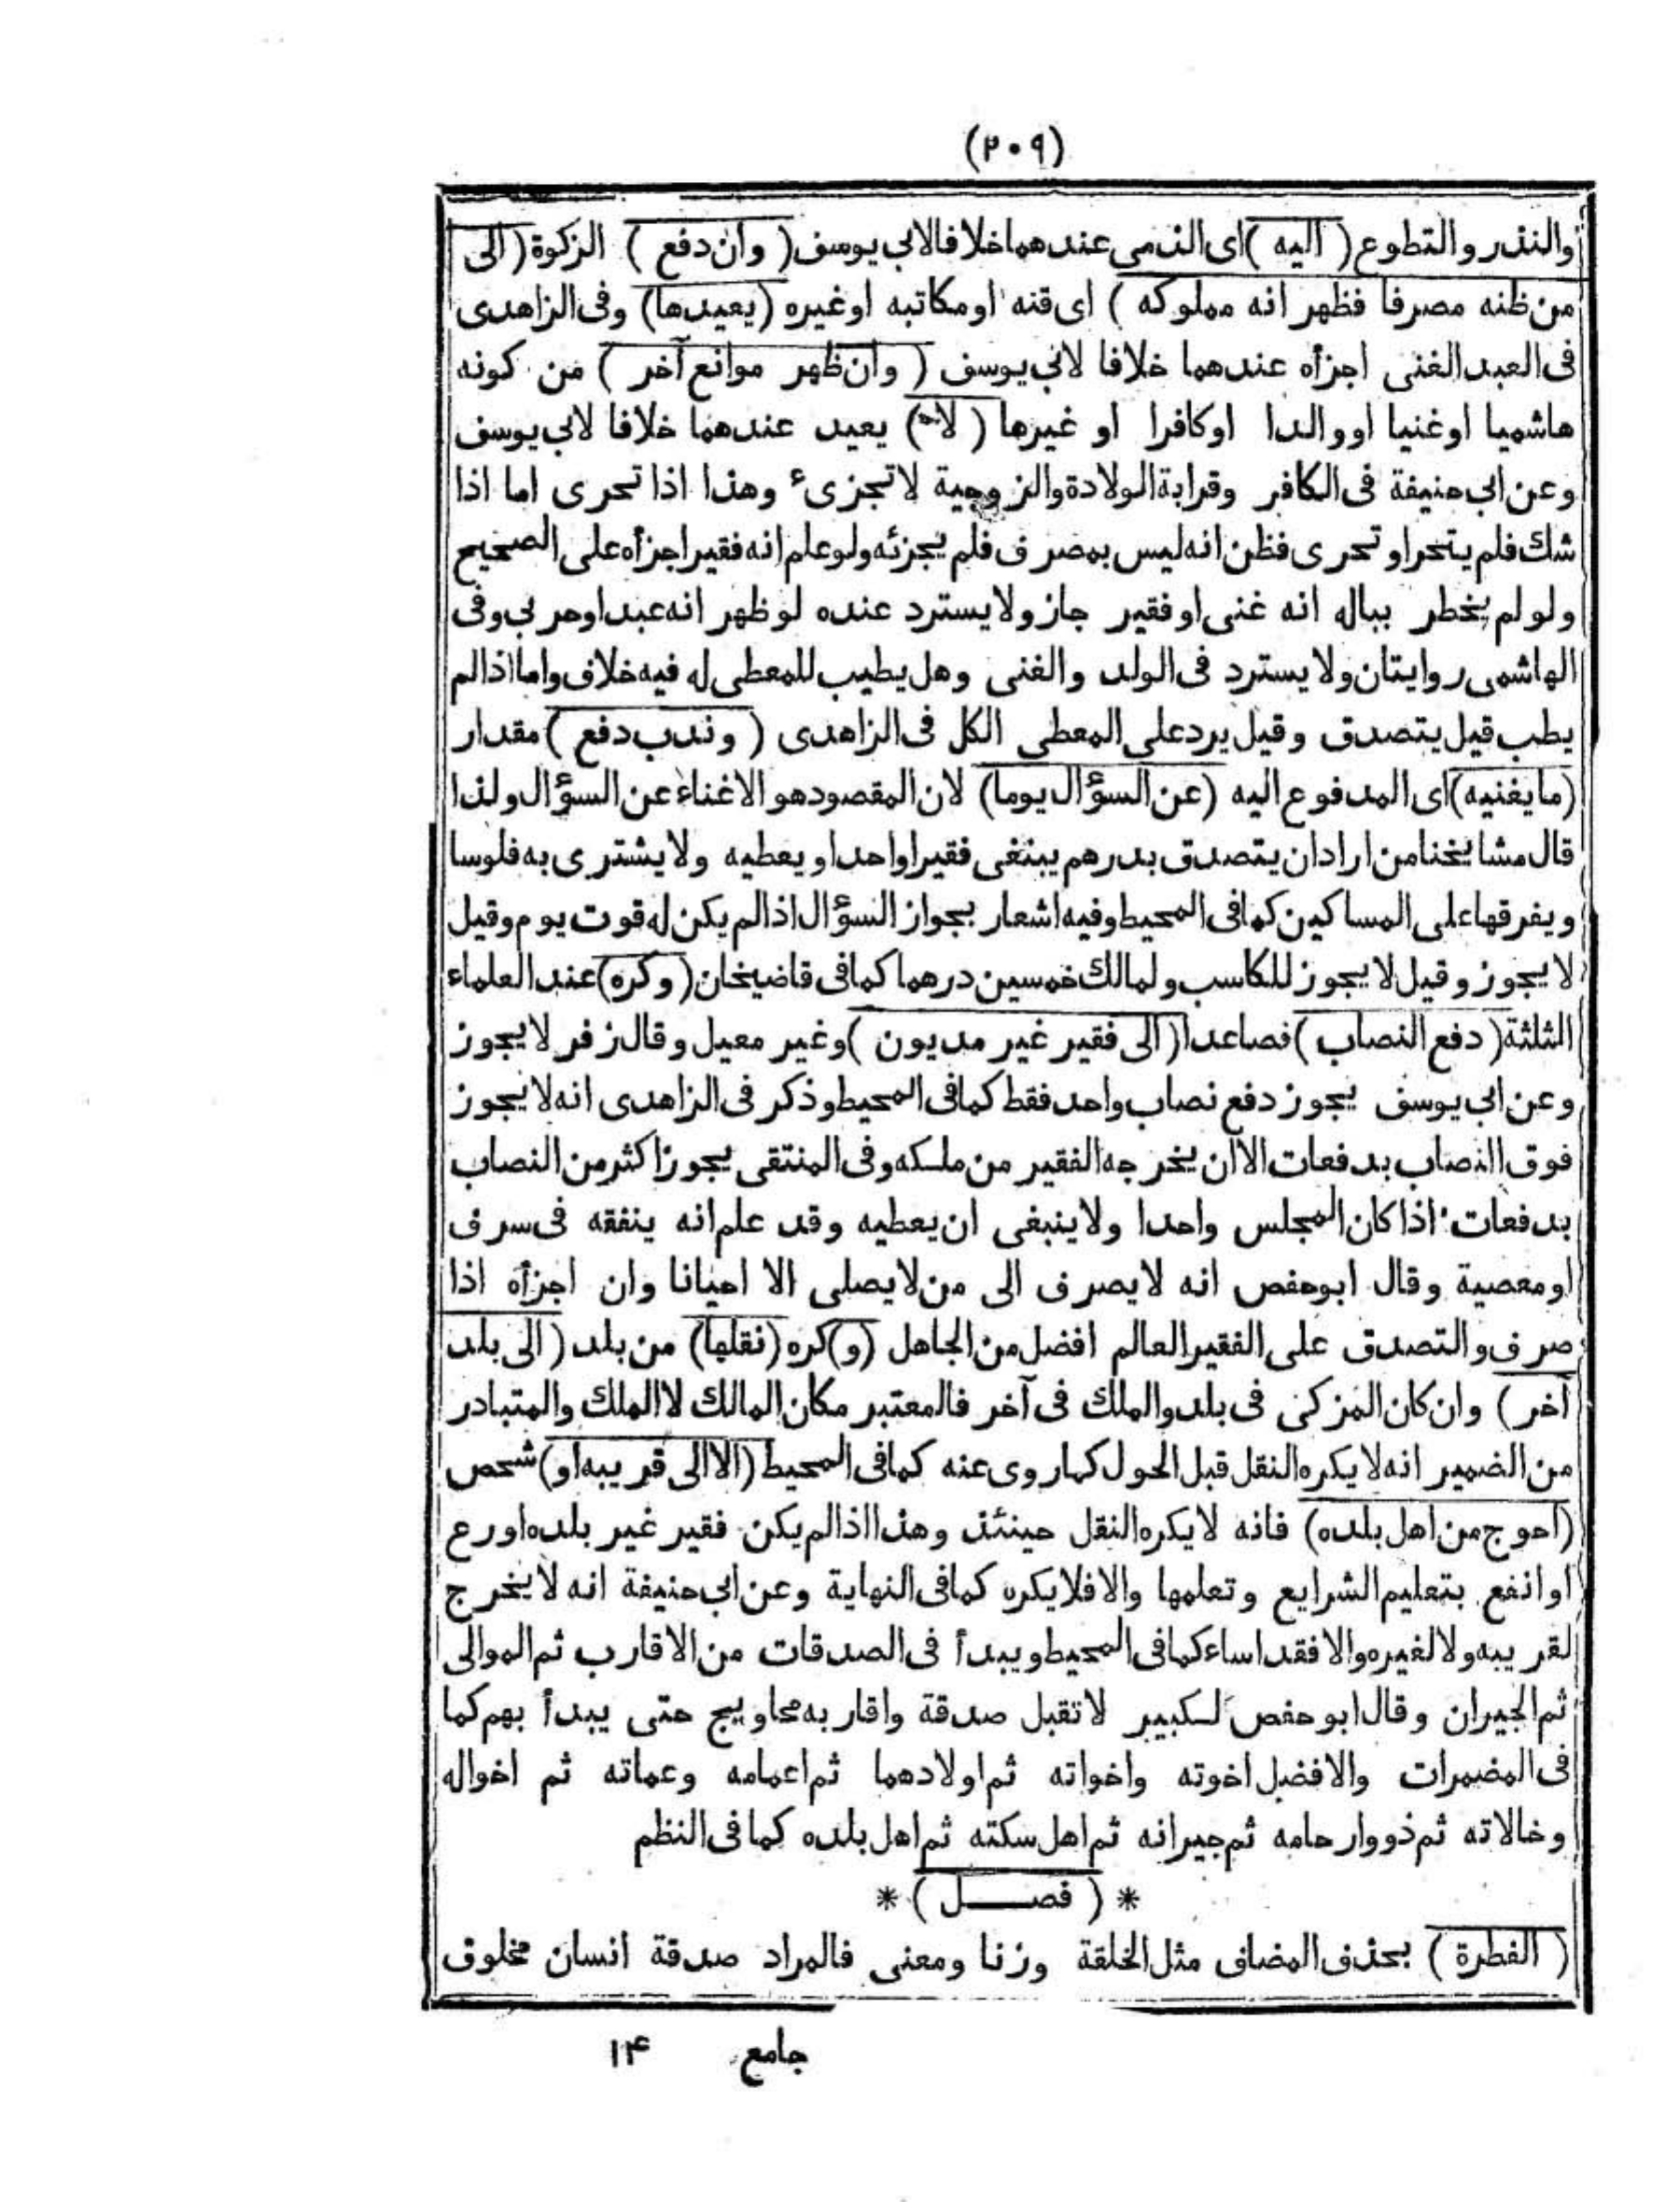 (۲۰۹)
والنذر والتطوع ( اليه ) اى الذمى عندهما خلافا لابى يوسف ( وان دفع ) الزكوة ( الى
من ظنه مصرفا فظهر انه مملوكه ) اى قنه او مكاتبه او غيره ( يعيدها ) وفى الزاهدى
فى العبد الغنى اجزأه عندهما خلافا لابى يوسف ( وان ظهر موانع آخر ) من كونه
هاشميا او غنيا او والدا او كافرا او غيرها ( لا ) يعيد عندهما خلافا لابى يوسف
وعن ابى حنيفة فى الكافر وقرابة الولادة والزوجية لا تجزىء وهذا اذا تحرى اما اذا
شك فلم يتحر او تحرى فظن انه ليس بمصرف فلم يجزئه ولو علم انه فقير اجزأه على الصحيح
ولو لم يخطر بباله انه غنى او فقير جاز ولا يسترد عنده لو ظهر انه عبد او حربى وفى
الهاشمى روايتان ولا يسترد فى الولد والغنى وهل يطيب للمعطى له فيه خلاف واما اذا لم
يطب قيل يتصدق وقيل يرد على المعطى الكل فى الزاهدى ( وندب دفع ) مقدار
( ما يغنيه ) اى المدفوع اليه ( عن السؤال يوما ) لان المقصود هو الاغناء عن السؤال ولذا
قال مشايخنا من اراد ان يتصدق بدرهم يبتغى فقيرا واحدا ويعطيه ولا يشترى به فلوسا
ويفرقها على المساكين كما فى المحيط وفيه اشعار بجواز السؤال اذا لم يكن له قوت يوم وقيل
لا يجوز وقيل لا يجوز للكاسب ولمالك خمسين درهما كما فى قاضيخان ( وكره ) عند العلماء
الثلثة ( دفع النصاب ) فصاعدا ( الى فقير غير مديون ) وغير معيل وقال زفر لا يجوز
وعن ابى يوسف يجوز دفع نصاب واحد فقط كما فى المحيط وذكر فى الزاهدى انه لا يجوز
فوق النصاب بدفعات الا ان يخرجه الفقير من ملكه وفى المنتقى يجوز اكثر من النصاب
بدفعات اذا كان المجلس واحدا ولا ينبغى ان يعطيه وقد علم انه ينفقه فى سرف
او معصية وقال ابو حفص انه لا يصرف الى من لا يصلى الا احيانا وان اجزأه اذا
صرف والتصدق على الفقير العالم افضل من الجاهل ( و ) كره ( نقلها ) من بلد ( الى بلد
آخر ) وان كان المزكى فى بلد والملك فى آخر فالمعتبر مكان المالك لا الملك والمتبادر
من الضمير انه لا يكره النقل قبل الحول كما روى عنه كما فى المحيط ( الا الى قريبه او ) شخص
( احوج من اهل بلده ) فانه لا يكره النقل حينئذ وهذا اذا لم يكن فقير غير بلده اورع
او انفع بتعليم الشرايع وتعلمها والا فلا يكره كما فى النهاية وعن ابى حنيفة انه لا يخرج
لقريبه ولا لغيره والا فقد اساء كما فى المحيط ويبدأ فى الصدقات من الاقارب ثم الموالى
ثم الجيران وقال ابو حفص لكبير لا تقبل صدقة واقاربه محاويج حتى يبدأ بهم كما
فى المضمرات والافضل اخوته واخواته ثم اولادهما ثم اعمامه وعماته ثم اخواله
وخالاته ثم ذووا رحامه ثم جيرانه ثم اهل سكته ثم اهل بلده كما فى النظم
* ( فصــــل ) *
( الفطرة ) بحذف المضاف مثل الخلقة وزنا ومعنى فالمراد صدقة انسان مخلوق
جامع ۱۴